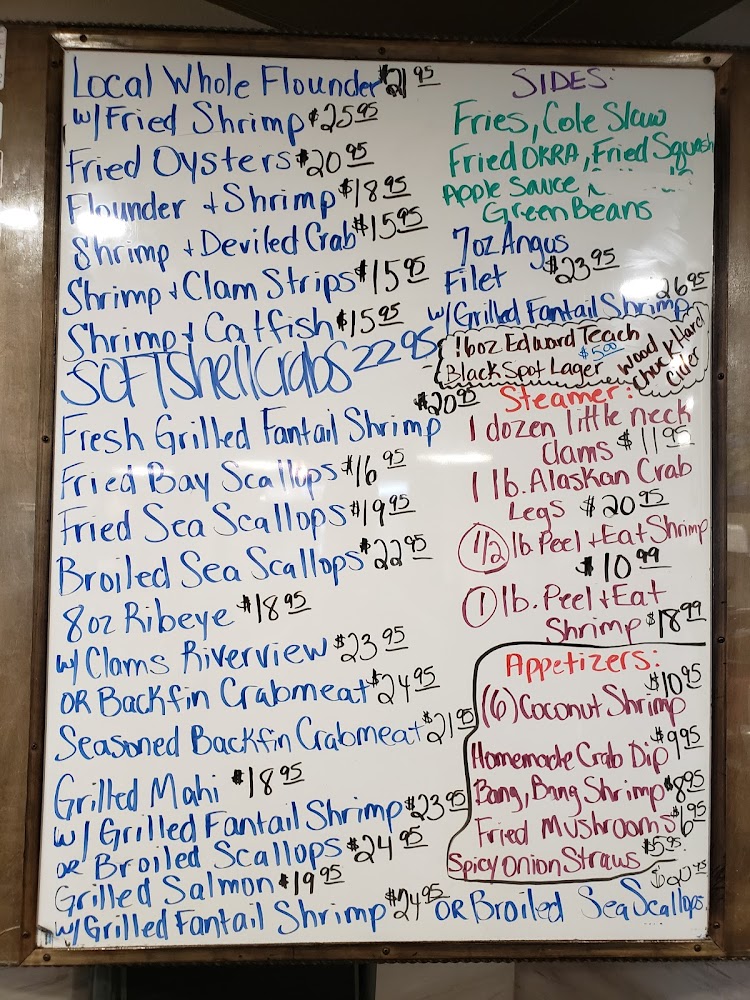 Local Whole Flounder $21.95
w/Fried Shrimp $25.95
Fried Oysters $20.95
Flounder + Shrimp $18.95
Shrimp + Deviled Crab $15.95
Shrimp + Clam Strips $15.95
Shrimp + Catfish $15.95
SOFTShell Crabs 22.95
$20.95
Fresh Grilled Fantail Shrimp
Fried Bay Scallops $16.95
Fried Sea Scallops $19.95
Broiled Sea Scallops $22.95
8oz Ribeye $18.95
w/ Clams Riverview $23.95
OR Backfin Crabmeat $24.95
Seasoned Backfin Crabmeat $21.95
Grilled Mahi $18.95
w/ Grilled Fantail Shrimp $23.95
or Broiled Scallops $24.95
Grilled Salmon $19.95
w/Grilled Fantail Shrimp $24.95 OR Broiled Sea Scallops
SIDES:
Fries, Cole Slaw
Fried OKRA, Fried Squash
Apple Sauce
Green Beans
7oz Angus
Filet $23.95
26.95
w/Grilled Fantail Shrimp
16oz Edward Teach
$5.00
Black Spot Lager
Wood Chuck Hard Cider
Steamer:
1 dozen little neck
Clams $11.95
1 lb. Alaskan Crab
Legs $20.95
1/2 lb. Peel + Eat Shrimp
$10.99
1 lb. Peel + Eat
Shrimp $18.99
Appetizers:
$10.95
(6) Coconut Shrimp
Homemade Crab Dip $9.95
Bang, Bang Shrimp $8.95
Fried Mushrooms $6.95
Spicy Onion Straws $5.95